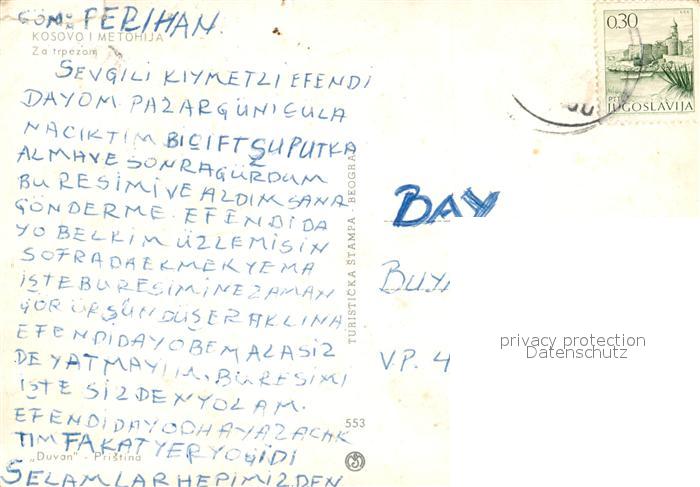 GÖN: FERIHAN
KOSOVO I METOHIJA
Za trpezom
SEVGILI KIYMETLI EFENDI
DAYOM PAZARGÜNICULA
NACIKTIM BIÇIFTŞUPUTKA
ALMAVE SONRAGÜRDUM
BU RESIMI VE ALDIMSANA
GÖNDERME. EFENDIDA
YO BELKIM ÜZLEMIŞIN
SOFRADAEKMEKYEMA
IŞTEBURESIMINEZAMAN
GÖRÜRSÜNDÜŞERAKLINA
EFENDIDAYOBEMALASIZ
DEYATMAYIIM. BURESIMI
IŞTE SIZDENYOLAM.
EFENDIDAYODHAYAZACAK
TIMFAKATYERYOGIDI
„Duvan" - Priština
SELAMLARHEPIMIZDEN
TURISTIČKA ŠTAMPA - BEOGRAD
553
0.30
PTT
JUGOSLAVIJA
BAY
V.P. 4
privacy protection
Datenschutz